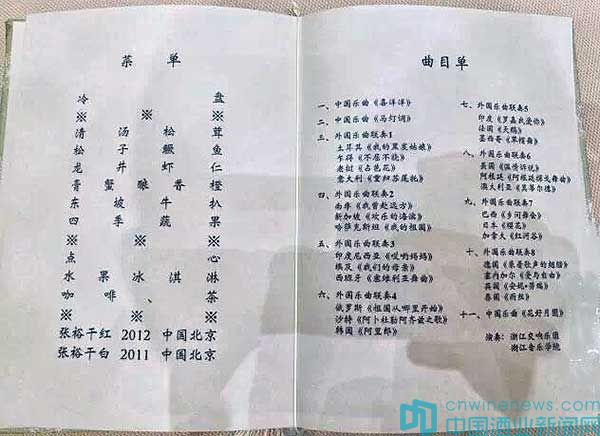 菜 单
冷 盘
※ ※
清 汤 松 茸
松 子 鳜 鱼
龙 井 虾 仁
膏 蟹 酿 香 橙
东 坡 牛 扒
四 季 蔬 果
※ ※ ※
点 心
水 果 冰 淇 淋
咖 啡 、 茶
※ ※ ※
张裕干红 2012 中国北京
张裕干白 2011 中国北京
曲目单
一、中国乐曲《喜洋洋》
二、中国乐曲《马灯调》
三、外国乐曲联奏1
土耳其《我的黑发姑娘》
乍得《不屈不挠》
老挝《占芭花》
意大利《重归苏莲托》
四、外国乐曲联奏2
南非《我曾赴远方》
新加坡《欢乐的海滨》
哈萨克斯坦《我的祖国》
五、外国乐曲联奏3
印度尼西亚《哎哟妈妈》
埃及《我们的母亲》
西班牙《塞维利亚舞曲》
六、外国乐曲联奏4
俄罗斯《祖国从哪里开始》
沙特《阿卜杜勒阿齐兹之歌》
韩国《阿里郎》
七、外国乐曲联奏5
印度《罗摩我爱你》
法国《天鹅》
墨西哥《草帽舞》
八、外国乐曲联奏6
美国《温情诉说》
阿根廷《阿根廷探戈舞曲》
澳大利亚《莫蒂尔德》
九、外国乐曲联奏7
巴西《乡间舞会》
日本《樱花》
加拿大《红河谷》
十、外国乐曲联奏8
德国《乘着歌声的翅膀》
塞内加尔《爱与自由》
英国《安妮·萝瑞》
泰国《雨丝》
十一、中国乐曲《花好月圆》
演奏：浙江交响乐团
浙江音乐学院
cnwinenews.com
中国酒业新闻网